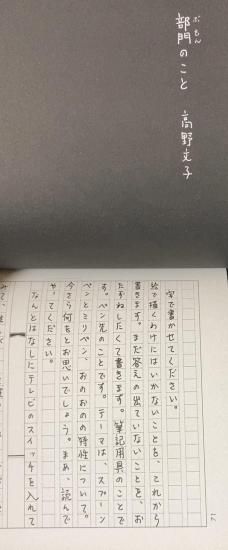 ぶもん
部門のこと 高野文子
字で書かせてください。
絵で描くわけにはいかないことを、これから
書きます。まだ答えの出ていないことを、お
たずねしたくて書きます。筆記用具のことで
す。ペン先のことです。テーマは、スプーン
ペンとミリペン、おのおのの特性について。
今さら何をとお思いでしょう。まあ、読んで
やってください。
なんとはなしにテレビのスイッチを入れて